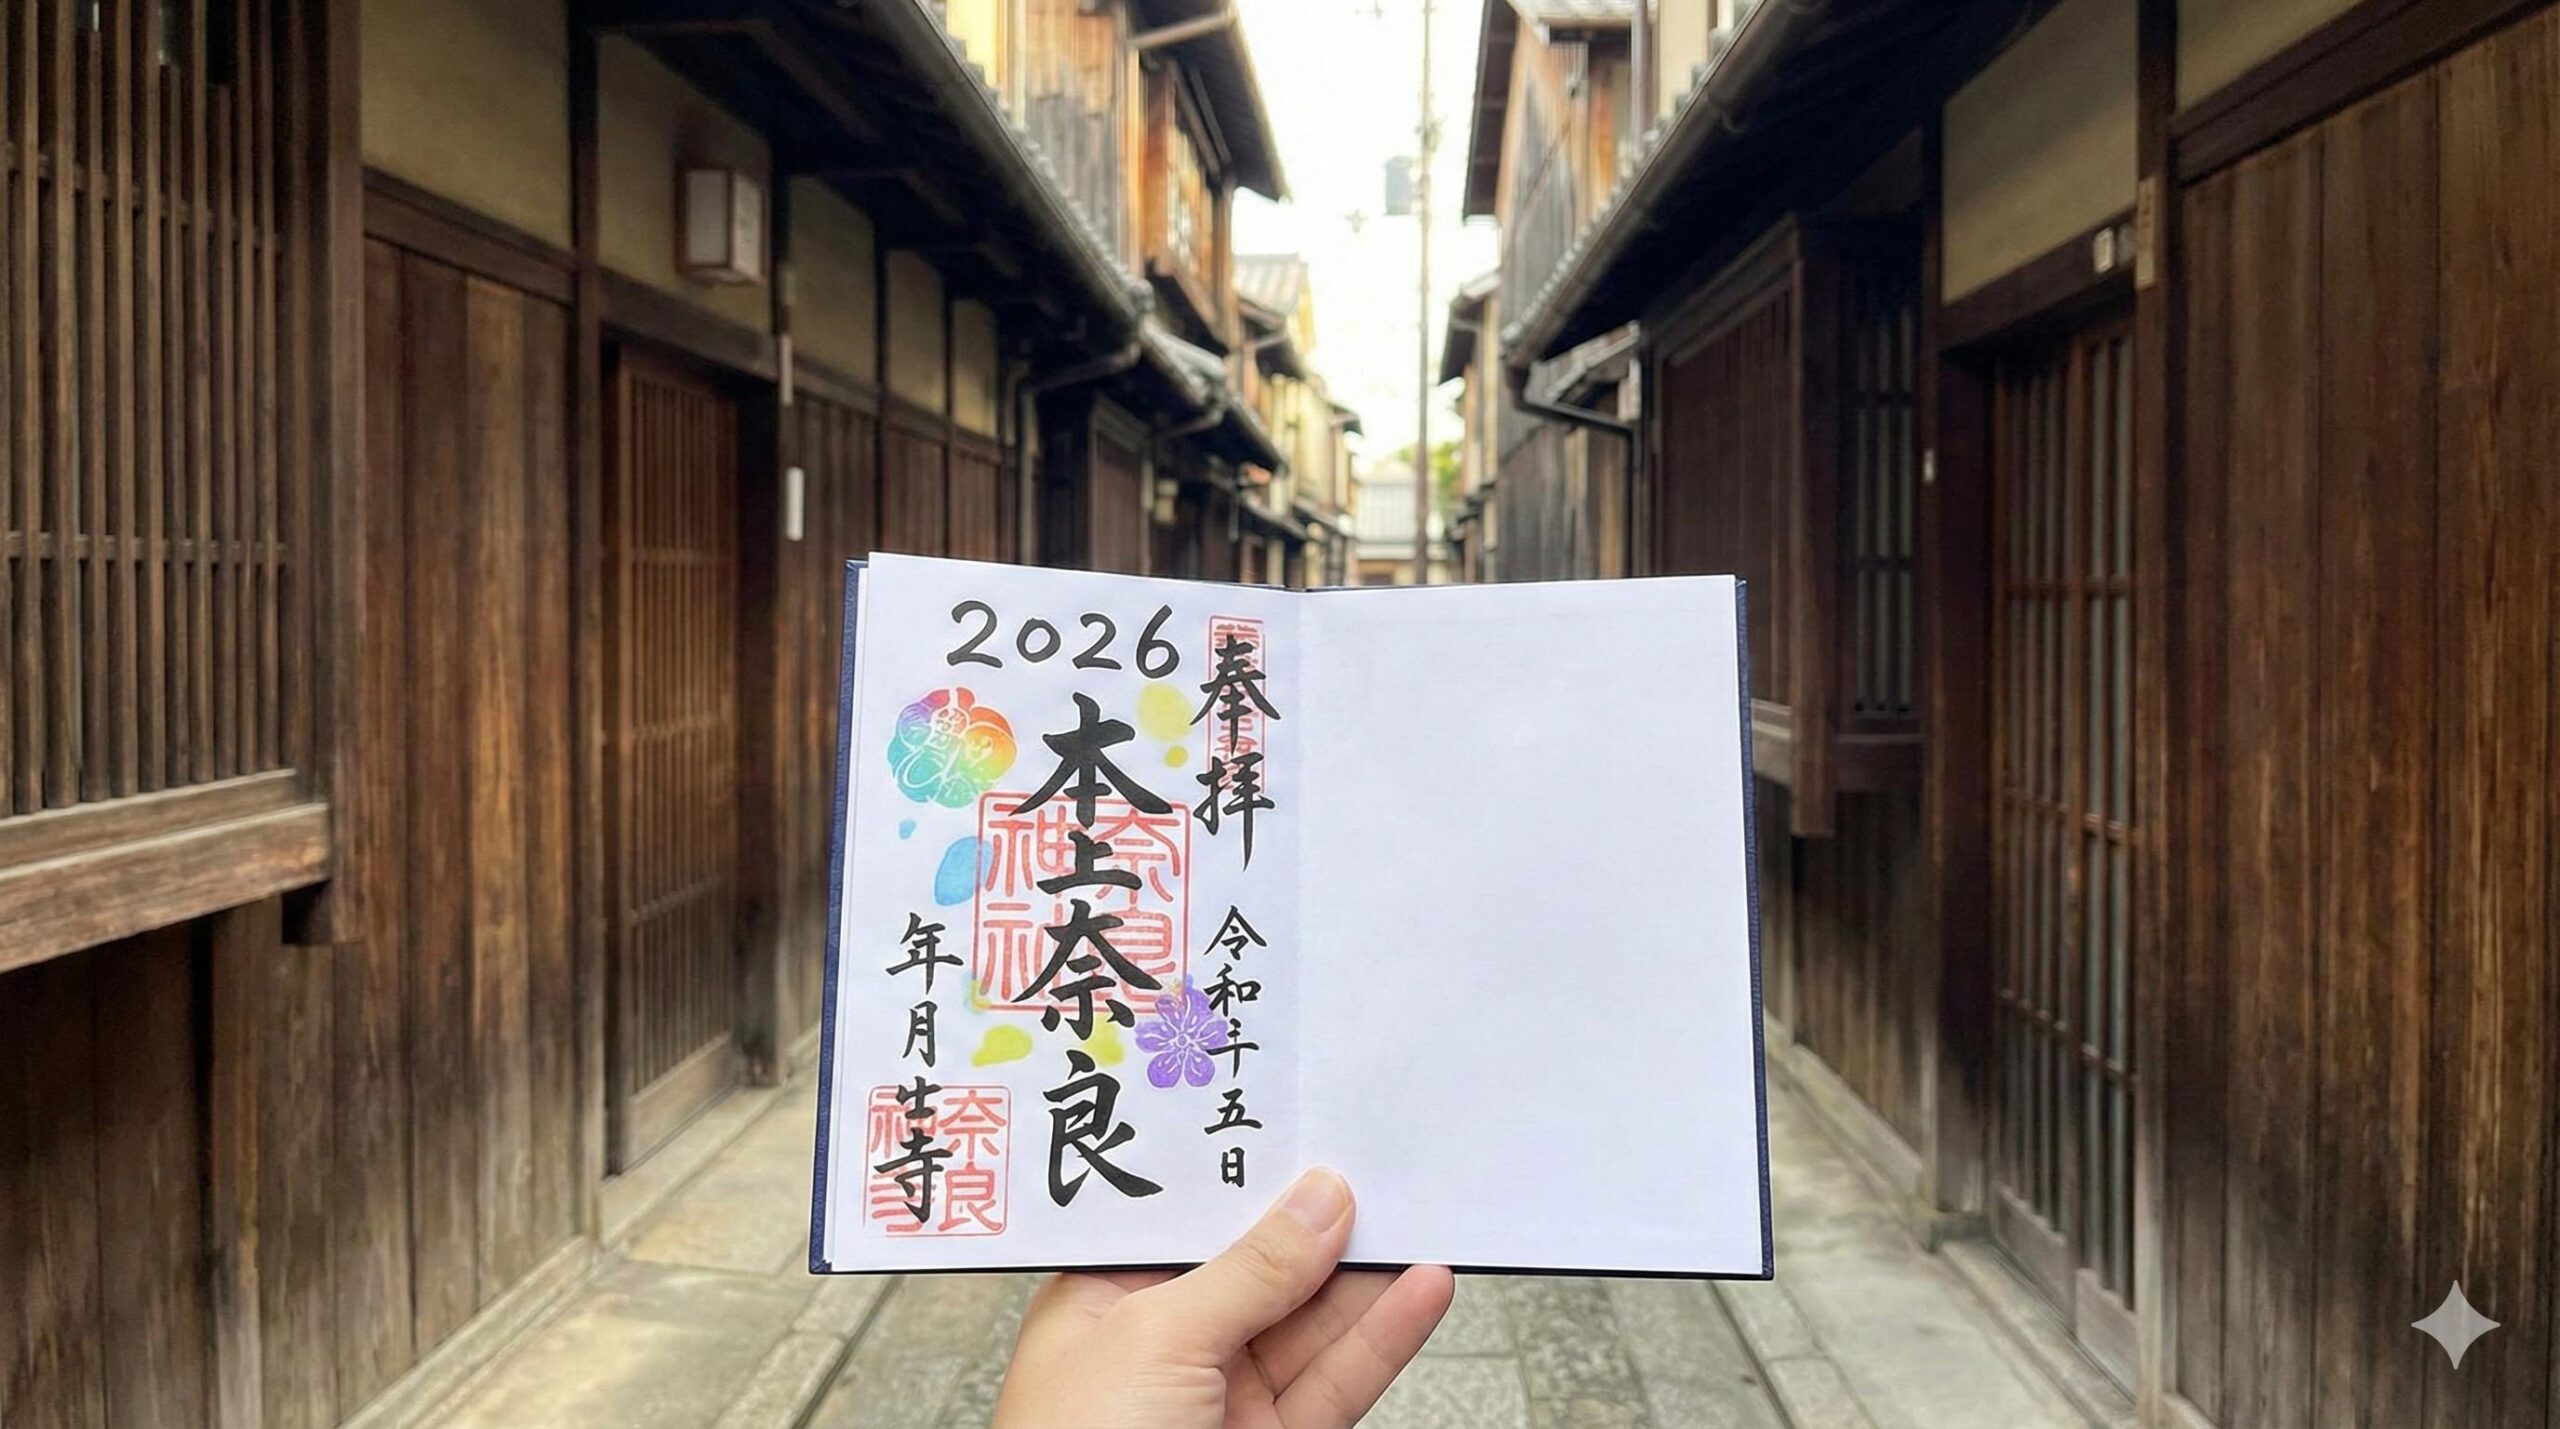 2026
奉拝
令和三年五日
本上奈良
奈良
神社
年月生寺
奈良